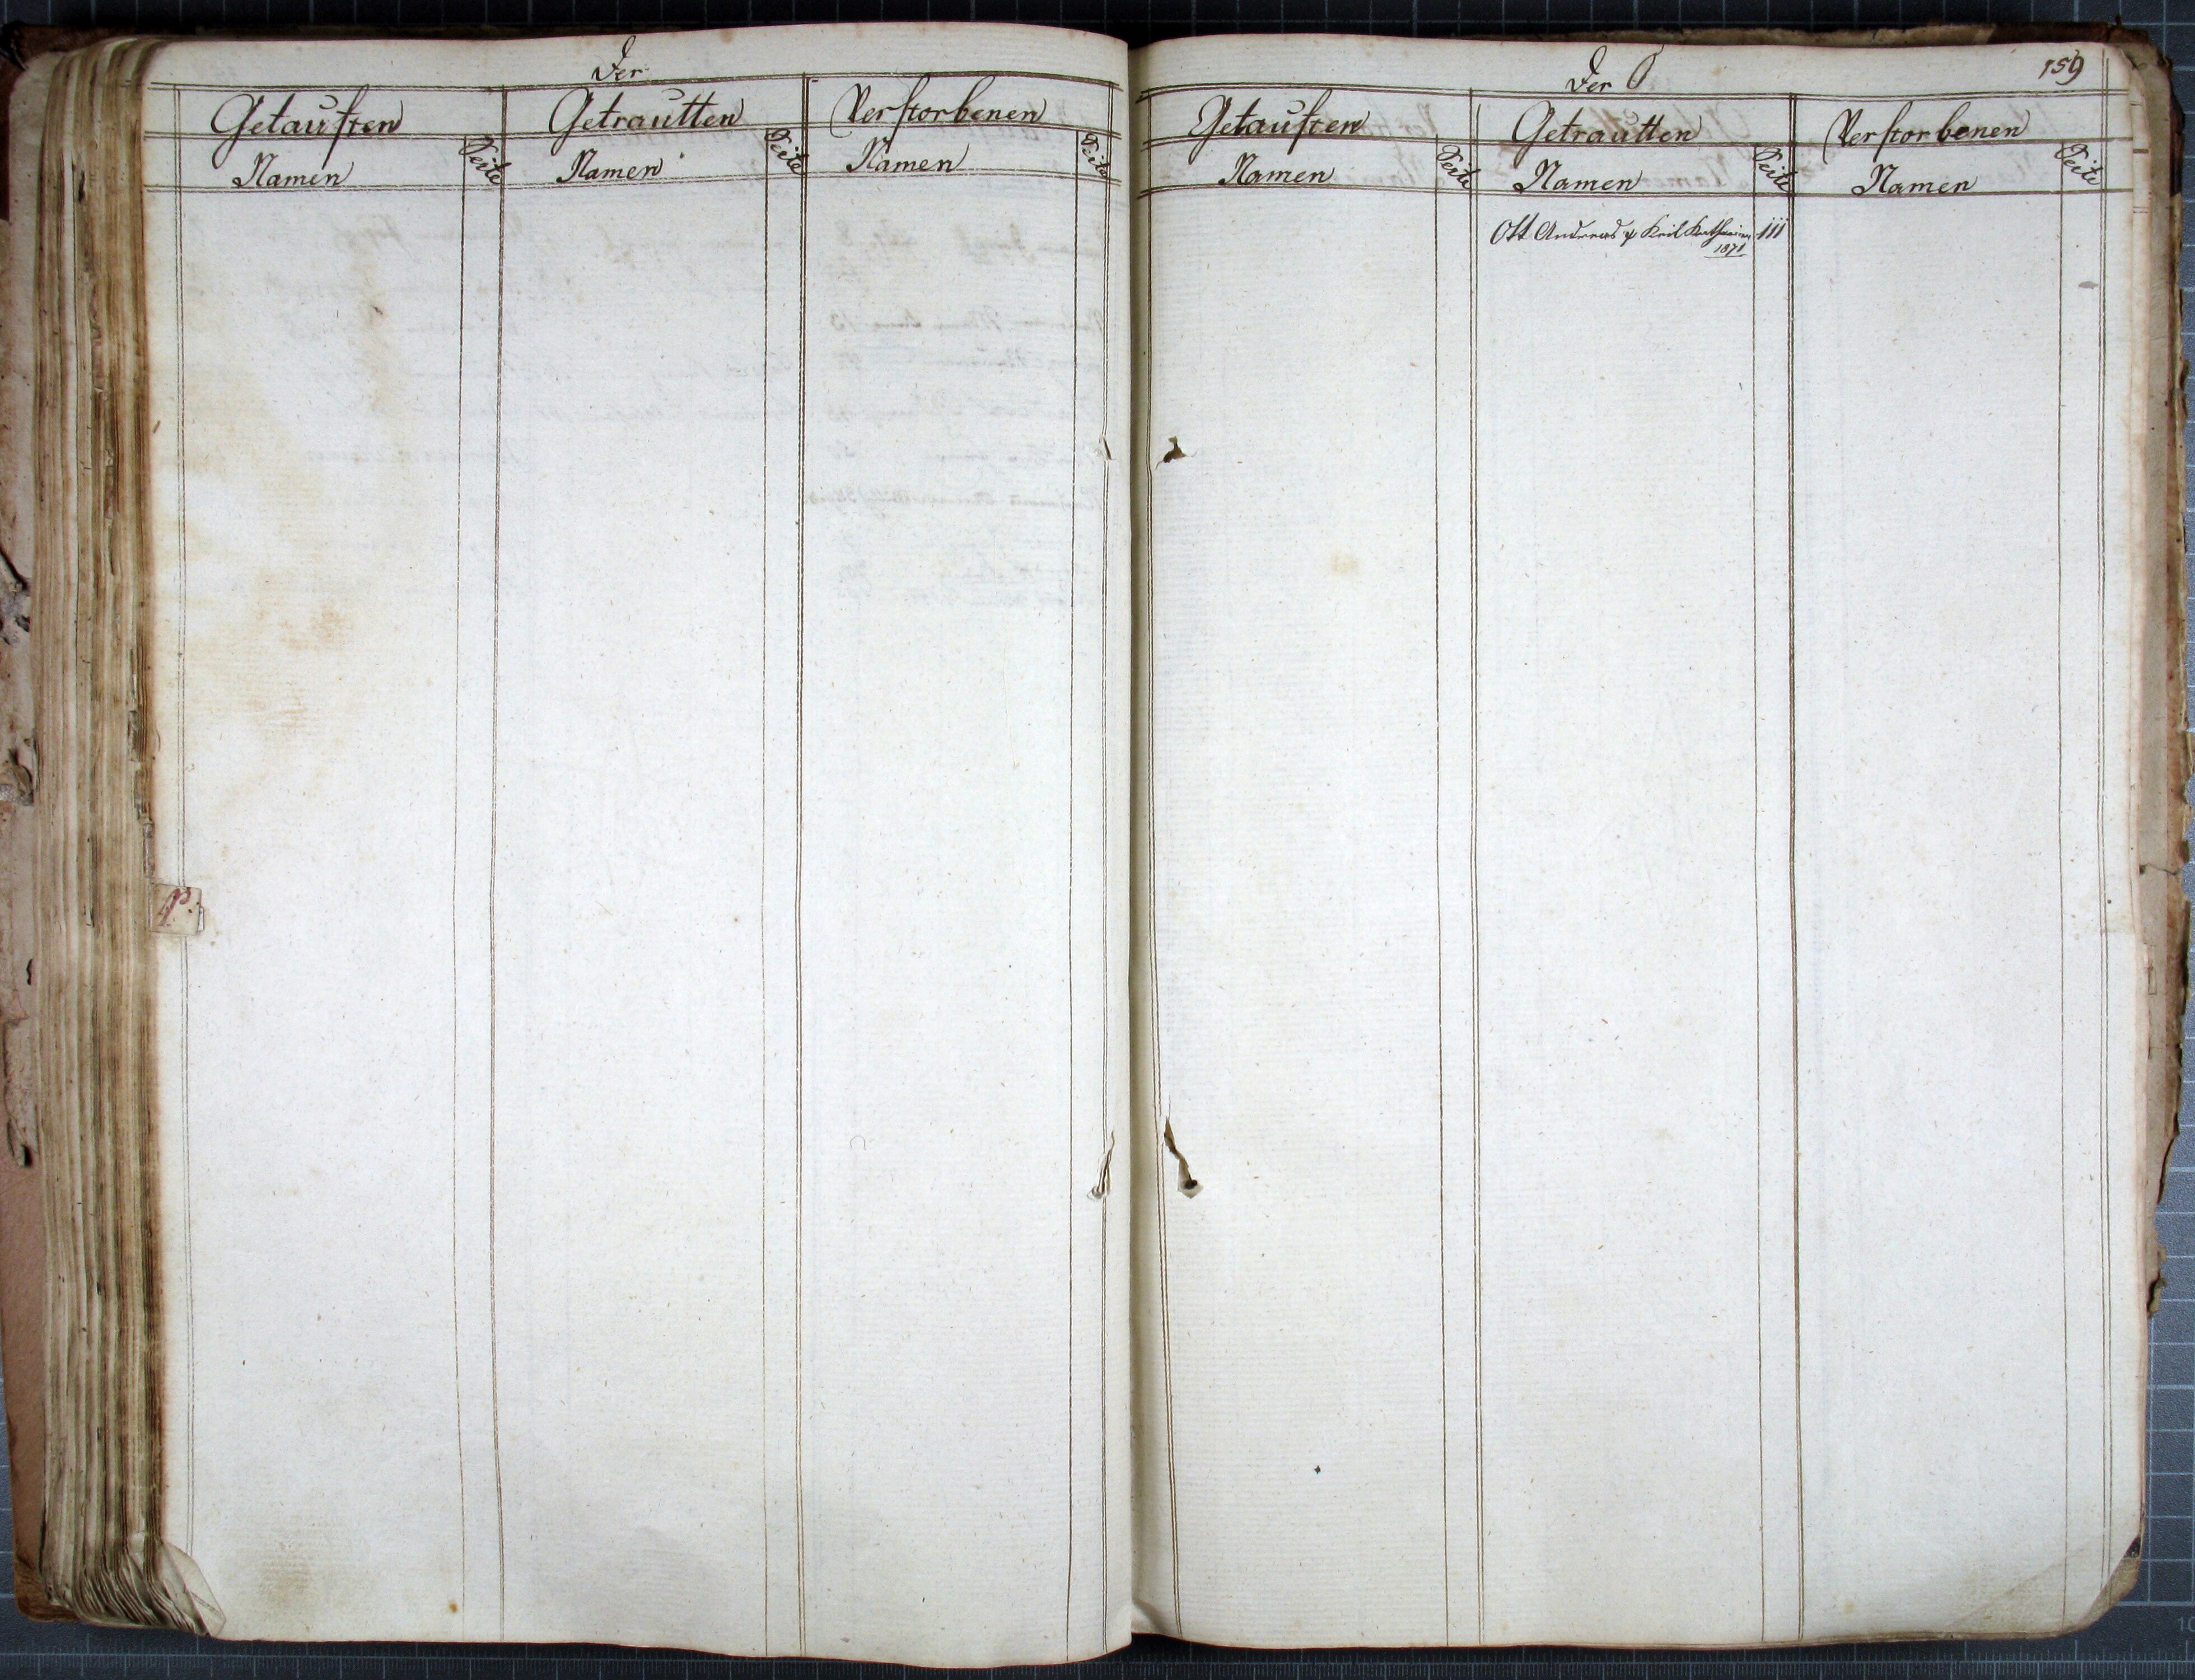 Der
Getauften Getrautten Verstorbenen
Namen Seite Namen Seite Namen Seite
P.
Der O 159
Getauften Getrautten Verstorbenen
Namen Seite Namen Seite Namen Seite
Ott Andreas & Keil Katharina 111
1871